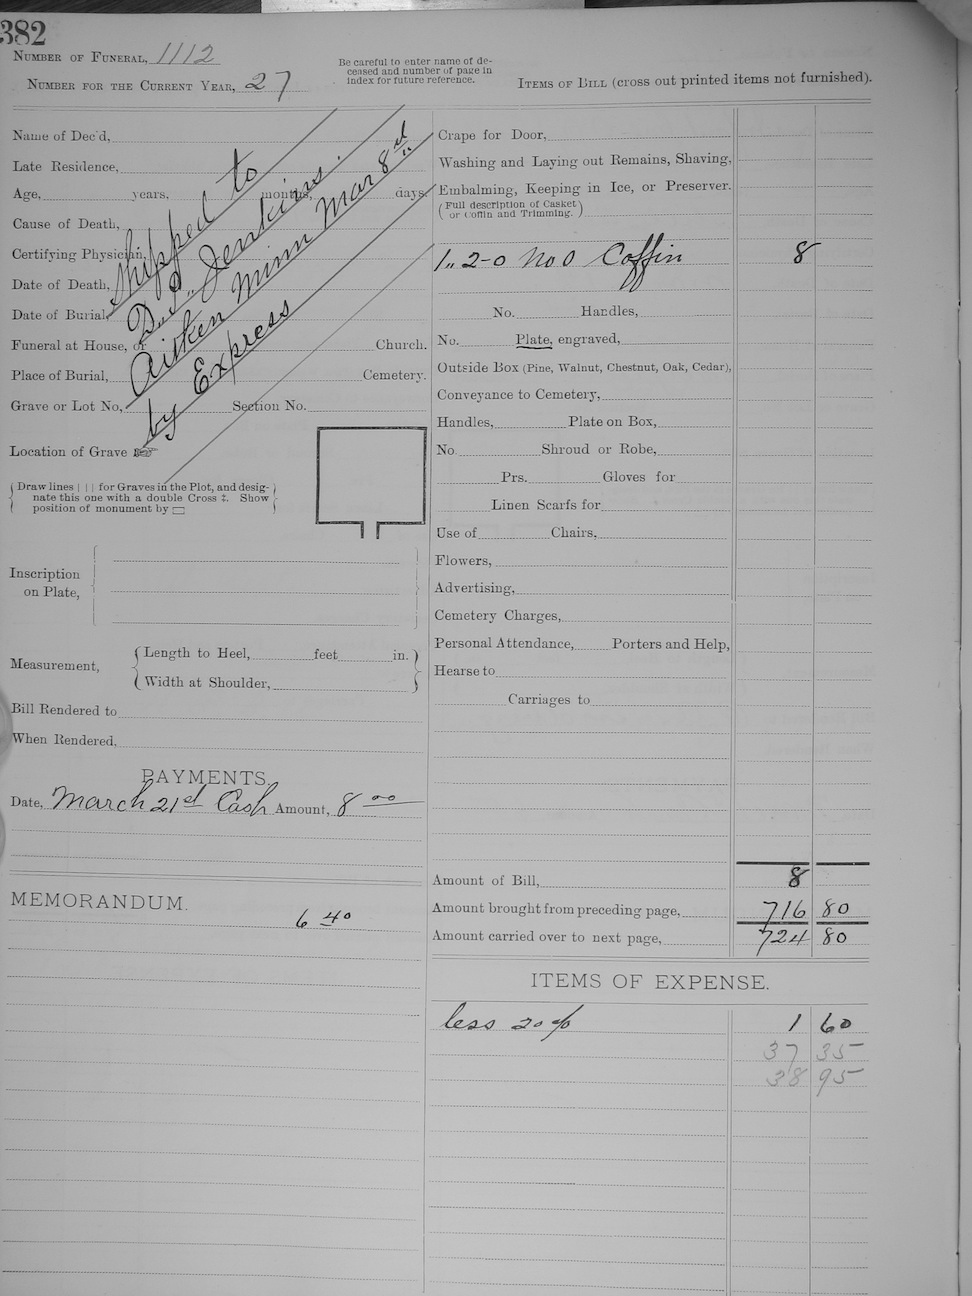 382
Number of Funeral, 1112
Number for the Current Year, 27
Be careful to enter name of de-
ceased and number of page in
index for future reference.
Items of Bill (cross out printed items not furnished).
Name of Dec'd,
Late Residence,
Age, years, months, days.
Cause of Death,
Certifying Physician,
Date of Death,
Date of Burial,
Funeral at House, or Church.
Place of Burial, Cemetery.
Grave or Lot No, Section No.
shipped to
D.. P.. Jenkins.
Aitken Minn Mar 8th
by Express
Location of Grave ☞
Draw lines | | | for Graves in the Plot, and desig-
nate this one with a double Cross ‡. Show
position of monument by ▭
Inscription
on Plate,
Measurement,
Length to Heel, feet in.
Width at Shoulder,
Bill Rendered to
When Rendered,
PAYMENTS.
Date, March 21st Cash Amount, 8 00
MEMORANDUM.
6 40
Crape for Door,
Washing and Laying out Remains, Shaving,
Embalming, Keeping in Ice, or Preserver.
(Full description of Casket
or Coffin and Trimming.)
1.. 2-0 No 0 Coffin 8
No. Handles,
No. Plate, engraved,
Outside Box (Pine, Walnut, Chestnut, Oak, Cedar),
Conveyance to Cemetery,
Handles, Plate on Box,
No. Shroud or Robe,
Prs. Gloves for
Linen Scarfs for
Use of Chairs,
Flowers,
Advertising,
Cemetery Charges,
Personal Attendance, Porters and Help,
Hearse to
Carriages to
Amount of Bill, 8
Amount brought from preceding page, 716 80
Amount carried over to next page, 724 80
ITEMS OF EXPENSE.
less 20% 1 60
37 35
38 95